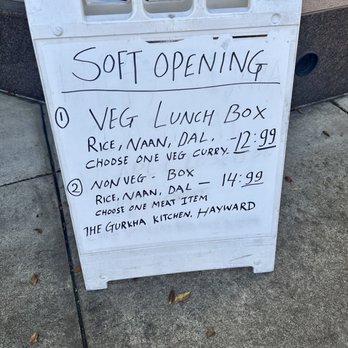 SOFT OPENING
① VEG LUNCH BOX
RICE, NAAN, DAL. - 12.99
CHOOSE ONE VEG CURRY
② NON VEG - BOX
RICE, NAAN, DAL — 14.99
CHOOSE ONE MEAT ITEM
THE GURKHA KITCHEN, HAYWARD